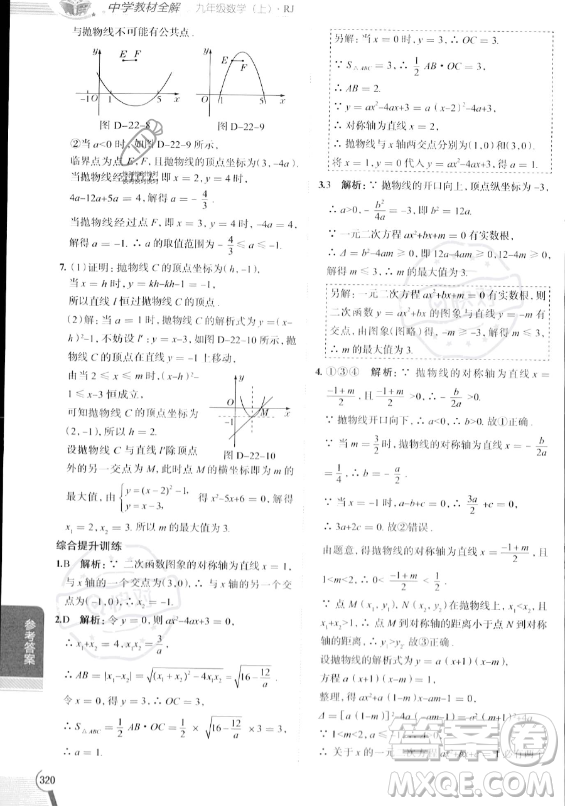 中学教材全解 九年级数学(上)·RJ
与抛物线可能有公共点.
E F
-1 O 1 5 x
图 D-22-8
E F
O 1 5 x
图 D-22-9
②当 a<0 时,如图 D-22-9 所示,
临界点为点 E,F,且抛物线的顶点坐标为(3,-4a).
当抛物线经过
4a-12a+5a=4,解得 a=-4/3.
当抛物线的顶点坐标为(3,4)时,-4a=4,
解得 a=-1. ∴ a 的取值范围为-4/3≤a≤-1.
7.(1)证明:抛物线 C 的顶点坐标为(h,h-1),
当 x=h 时,y=h-1,
所以直线 l 恒过抛物线 C 的顶点.
(2)解:抛物线 C 的解析式为 y=(x-h)²+
h-1.如图 D-22-10 所示,抛物线
C 的顶点在直线 y=x-1 上移动,
由当 2≤x≤m 时,(x-h)²+
h-1≤x-3 恒成立,
可知抛物线 C 的顶点为
(2,-1),所以 h=2.
y O -1 M x
图 D-22-10
设抛物线 C 与直线 l′ 除顶点
外的另一交点为 M,此时点 M 的横坐标即为 m 的
最大值.由{y=(x-2)²-1, y=x-3, 得 x²-5x+6=0,解得
x₁=2,x₂=3.所以 m 的最大值为 3.
综合提升训练
1.B 解析:∵ 二次函数图象的对称轴为直线 x=1,
与 x 轴的一个交点为(3,0),∴ 与 x 轴的另一个交
点为(-1,0).
2.D 解析:令 y=0,则 ax²-4ax+3=0,
∴ x₁+x₂=4,x₁x₂=3/a.
∴ AB=|x₁-x₂|=√((x₁+x₂)²-4x₁x₂)=√(16-12/a).
令 x=0,则 y=3,∴ OC=3.
∴ S△ABC=1/2 AB·OC=1/2×√(16-12/a)×3=3,
∴ a=1.
另解:当 x=0 时,y=3,∴ OC=3.
∵ S△ABC=3,∴ 1/2 AB·OC=3,
∴ AB=2.
∵ y=ax²-4ax+3=a(x-2)²-4a+3,
∴ 对称轴为直线 x=2,
∴ 抛物线与 x 轴两交点分别为(1,0)与(3,0).
将 x=1,y=0 代入 y=ax²-4ax+3,可得 a=1.
3.3 解析:∵ 抛物线的开口向上,顶点纵坐标为-3,
∴ a>0,-b²/4a=-3,即 b²=12a.
∵ 一元二次方程 ax²+bx+m=0 有实数根,
∴ Δ=b²-4am≥0,即 12a-4am≥0,
∴ 12-4m≥0,∴ m≤3,∴ m 的最大值为 3.
另解:一元二次方程 ax²+bx+m=0 有实数根,则
二次函数 y=ax²+bx 的图象与直线 y=-m 有
交点,由图象(图略)得,-m≥-3,解得 m≤3,
∴ m 的最大值为 3.
4.①③④ 解析:∵ 抛物线的对称轴为直线 x=
(-1+m)/2,且 1<m<2,∴ (-1+m)/2>0,∴ -b/2a>0,
∵ 抛物线开口向下,∴ a<0,∴ b>0,故①正确.
∵ 当 m=3/2 时,抛物线的对称轴为直线 x=-b/2a=
1/4,∴ b=-a/2.
∵ 当 x=-1 时,a-b+c=0,∴ 3/2 a+c=0,
∴ 3a+2c=0,故②错误.
由题意,得抛物线的对称轴为直线 x=(-1+m)/2,
1<m<2,∴ 0<(-1+m)/2<1/2.
∵ 点 M(x₁,y₁),
对称轴的距离小于点 N 到对称轴
的距离,∴ y₁>y₂,故③正确.
设抛物线的解析式为 y=a(x+1)(x-m),
方程 a(x+1)(x-m)=1,
整理,得
Δ=[a(1-m)]²-4a(
∵ 1<m<2,a≤-1,
∴ 关于 x 的一元
参考答案
320
答案圈
MXQE.COM